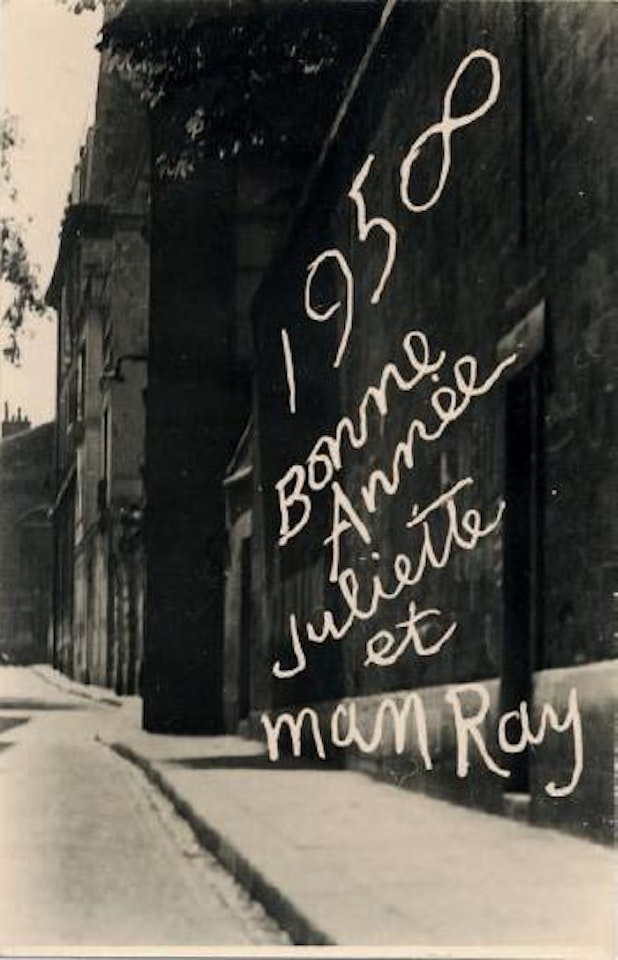 1958
Bonne
Année
Juliette
et
man Ray